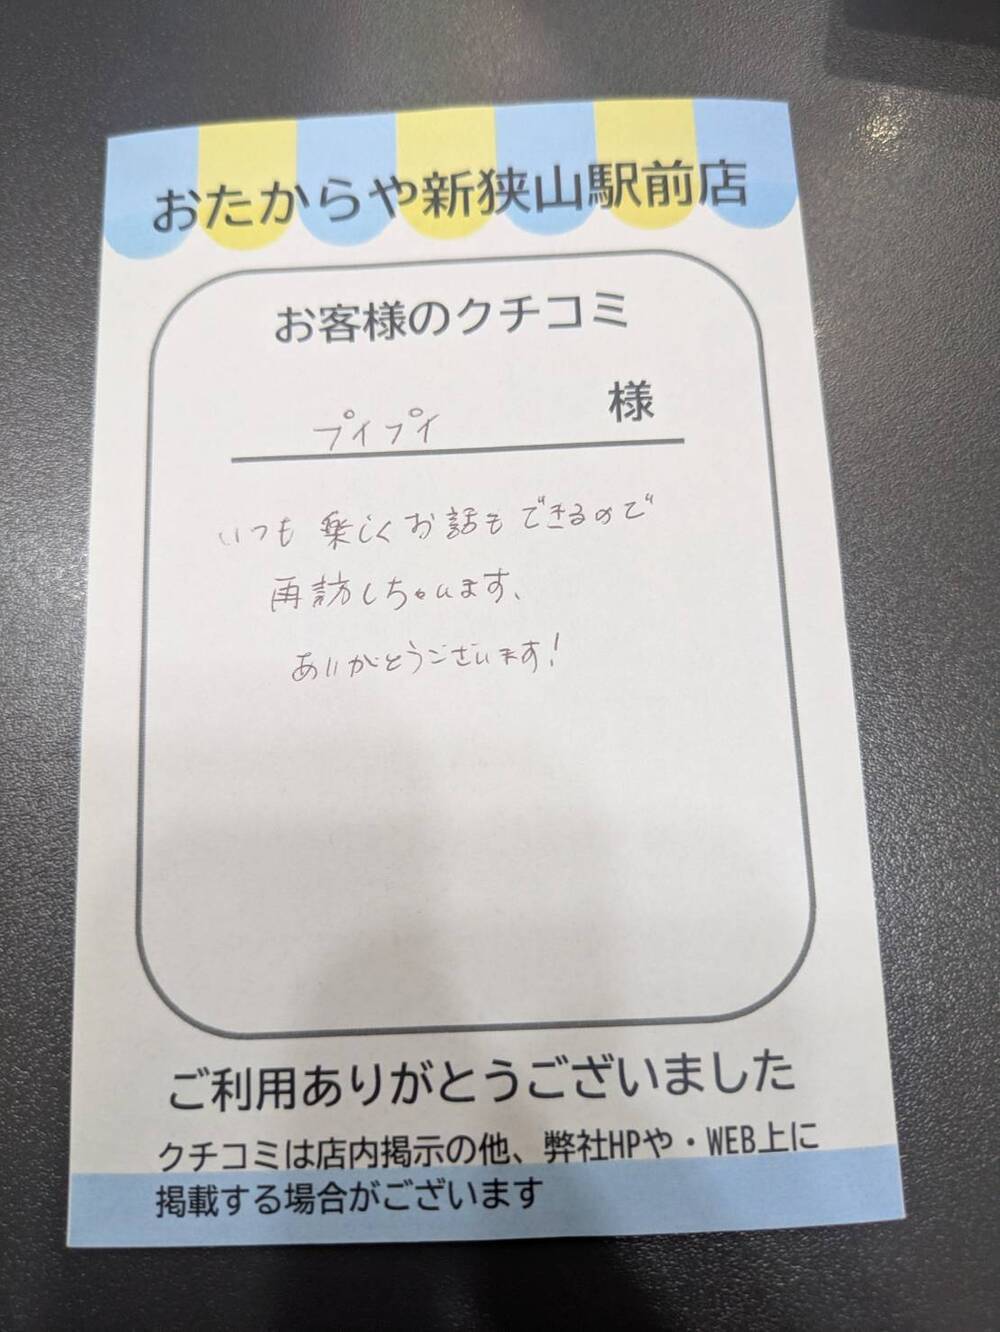 おたからや新狭山駅前店
お客様のクチコミ
プイプイ 様
いつも楽しくお話もできるので
再訪しちゃいます、
ありがとうございます!
ご利用ありがとうございました
クチコミは店内掲示の他、弊社HPや・WEB上に
掲載する場合がございます